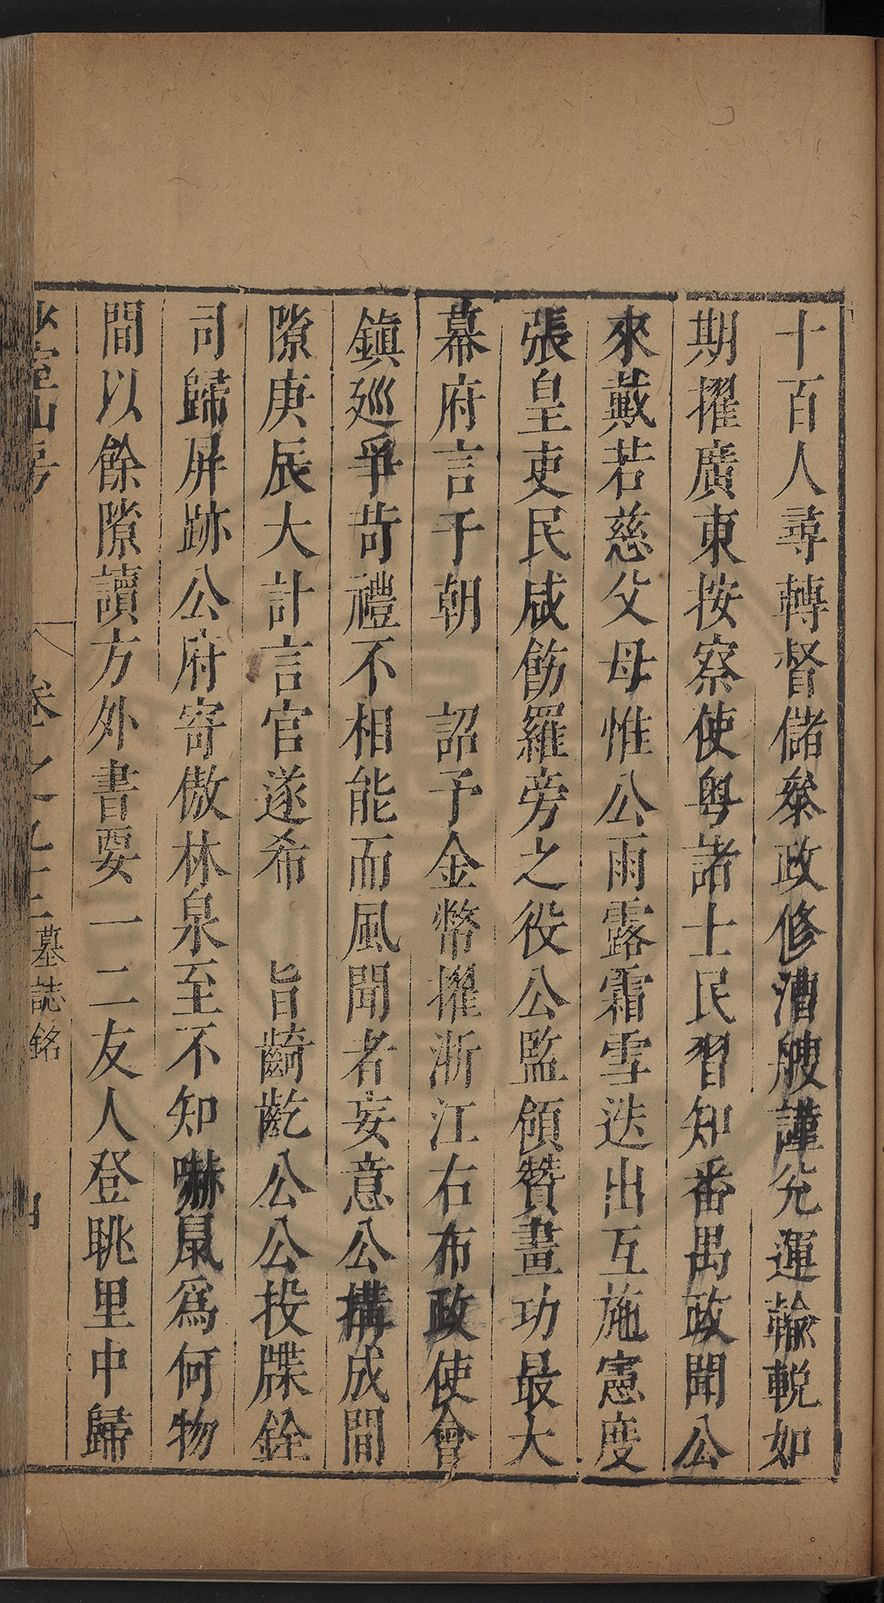 十百人尋轉督儲叅政修漕艘謹兊運輸輓如
期擢廣東按察使粤諸士民習知番禺政聞公
來戴若慈父母惟公雨露霜雪迭出互施憲度
張皇吏民咸飭羅旁之役公監領贊畫功最大
幕府言于朝　詔予金幣擢浙江右布政使會
鎮廵爭苛禮不相能而風聞者妄意公搆成間
隙庚辰大計言官遂希　旨齮齕公公投牒銓
司歸屏跡公府寄傲林泉至不知嚇䑕爲何物
間以餘隙讀方外書要一二友人登眺里中歸
山房
卷之九十二
墓誌銘